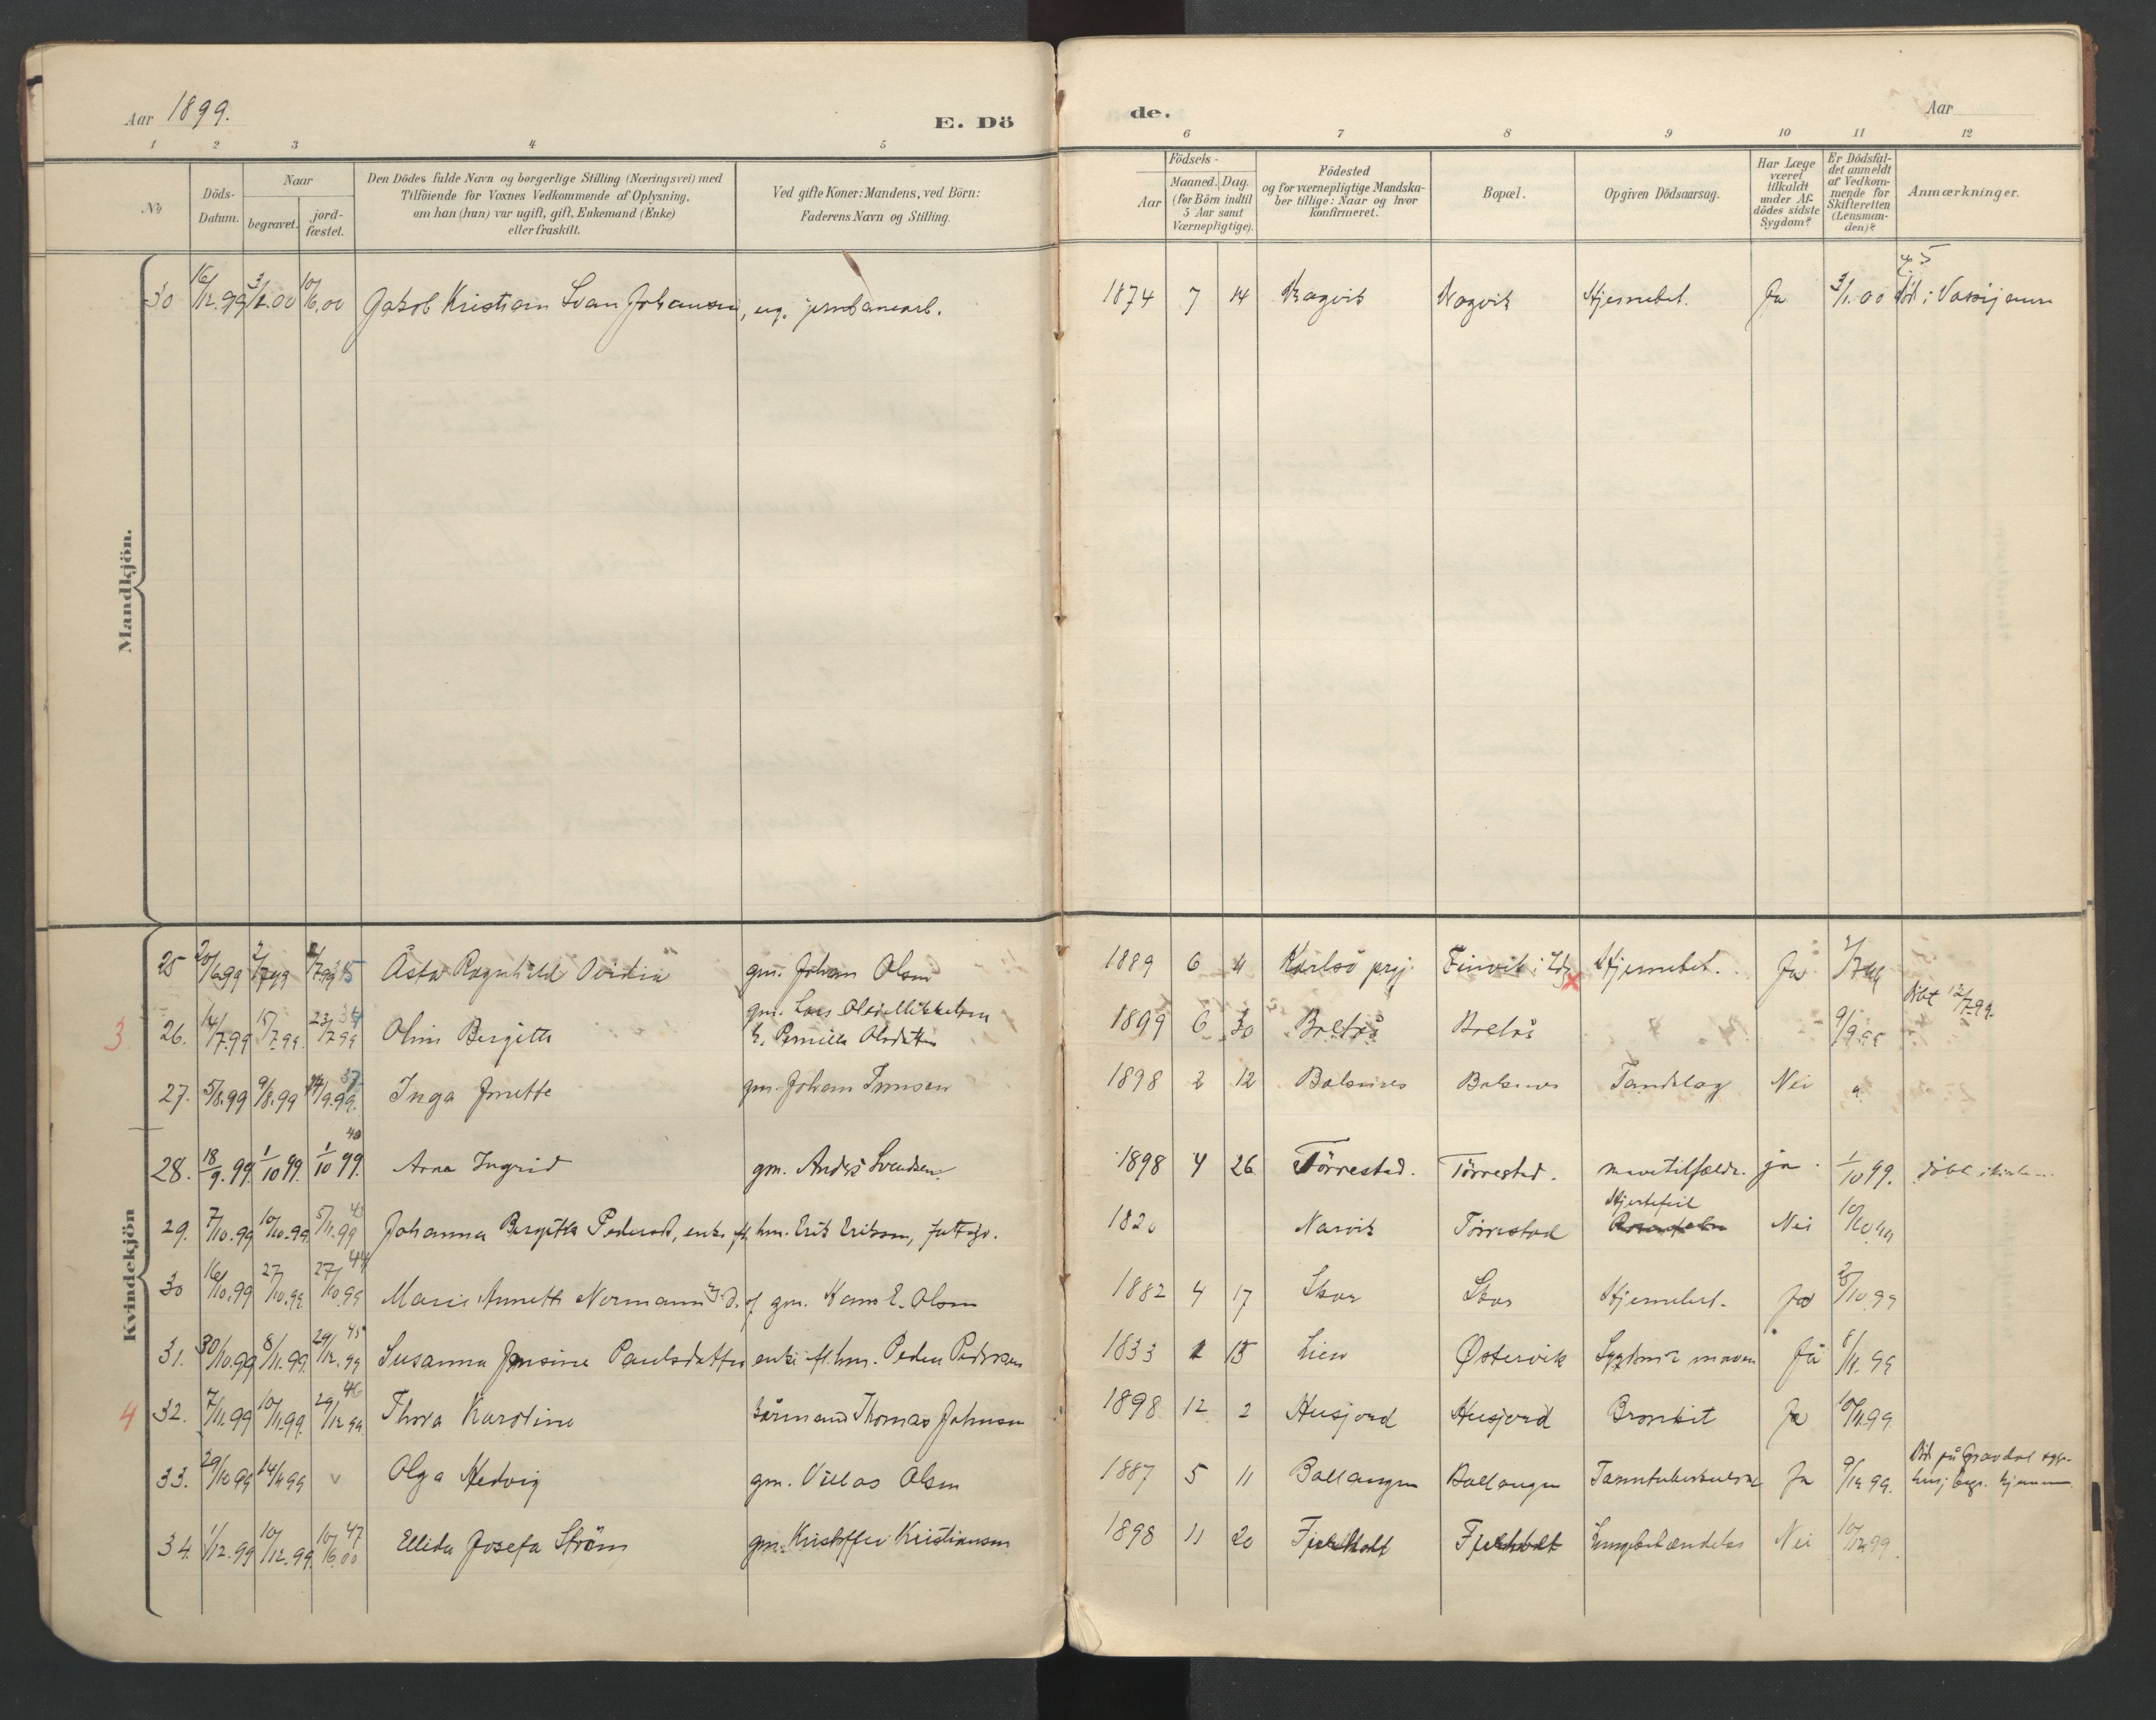 Aar 1899.
E. Dö
de.
Aar
1 2 3 4 5 6 7 8 9 10 11 12
No
Döds-Datum.
Naar
begravet.
jord-fæstet.
Den Dödes fulde Navn og borgerlige Stilling (Næringsvei) med
Tilföiende for Voxnes Vedkommende af Oplysning,
om han (hun) var ugift, gift, Enkemand (Enke)
eller fraskilt.
Ved gifte Koner: Mandens, ved Börn:
Faderens Navn og Stilling.
Födsels-
Aar
Maaned. Dag.
(for Börn indtil
5 Aar samt
Værnepligtige).
Födested
og for værnepligtige Mandska-
ber tillige: Naar og hvor
Konfirmeret.
Bopæl.
Opgiven Dödsaarsag.
Har Læge
været
tilkaldt
under Af-
dödes sidste
Sygdom?
Er Dödsfal-
det anmeldt
af Vedkom-
mende for
Skifteretten
(Lensman-
den)?
Anmærkninger.
Mandkjön.
30 16/12.99 10/6.00 Jakob Kristian Svan Johansen, ug. jernbanearb. 1874 7 14 Ja 3/1.00
Kvindekjön
25 20/6.99 35 Åsta Ragnhild Ovidia gm. Johan Olsen 1889 6 4 Karlsö prgj. Hjernebet. Ja
3 26. 14/7.99 15/7.99 23/7.99 Oline Bergitte gm. Lars Olai Mikkelsen
h. Pernille Olsdatter 1899 6 30 9/9.99 Döbt 12/7.99.
27. 5/8.99 9/8.99 37 Inga Jonette gm. Johan 1898 2 12 Balsnes Balsnes Nei
28. 18/9.99. 1/10 99. 1/10 99. 40 Arna Ingrid gm. Anders Svendsen. 1898 4 26 Törrestad. Törrestad. ja. 1/10 99.
29. 7/10.99 10/10.99 5/11.99 43 Johanna Bergitte Pedersd, enke ft. hm. Erik Eriksen, 1820 Narvik Törrestad Hjertefeil Nei
30 16/10.99 27/10.99 27/10.99 44 Marie Annette Normann gm. Hans E. Olsen 1882 4 17 Skar Skar Hjernebet. Ja
31. 30/10.99 8/11.99. 29/12.99 45 Susanna Jensine Paulsdatter enke ft. hm. Peder Pedersen 1833 1 15 Lien Østervik Sygdom i maven Ja 8/11.99
4 32. 7/11.99 10/11.99. 29/12.99 46 Thora Karoline Thomas Johnsen 1898 12 2 Husjord Husjord Bronkit Ja 10/11.99
33. 29/10 99 14/11 99 v Olga Hedvig gm. Villas Olsen 1887 5 11 Ballangen Ballangen Ja 9/12.99. Död på Gravdal syge-
34. 1/12.99 10/12.99. 10/6.00 47 Ellida Josefa Ström gm. Kristoffer Kristiansen 1898 11 20 Fjeldholt Fjeldholt Lungebetændelse Nei 10/12.99.